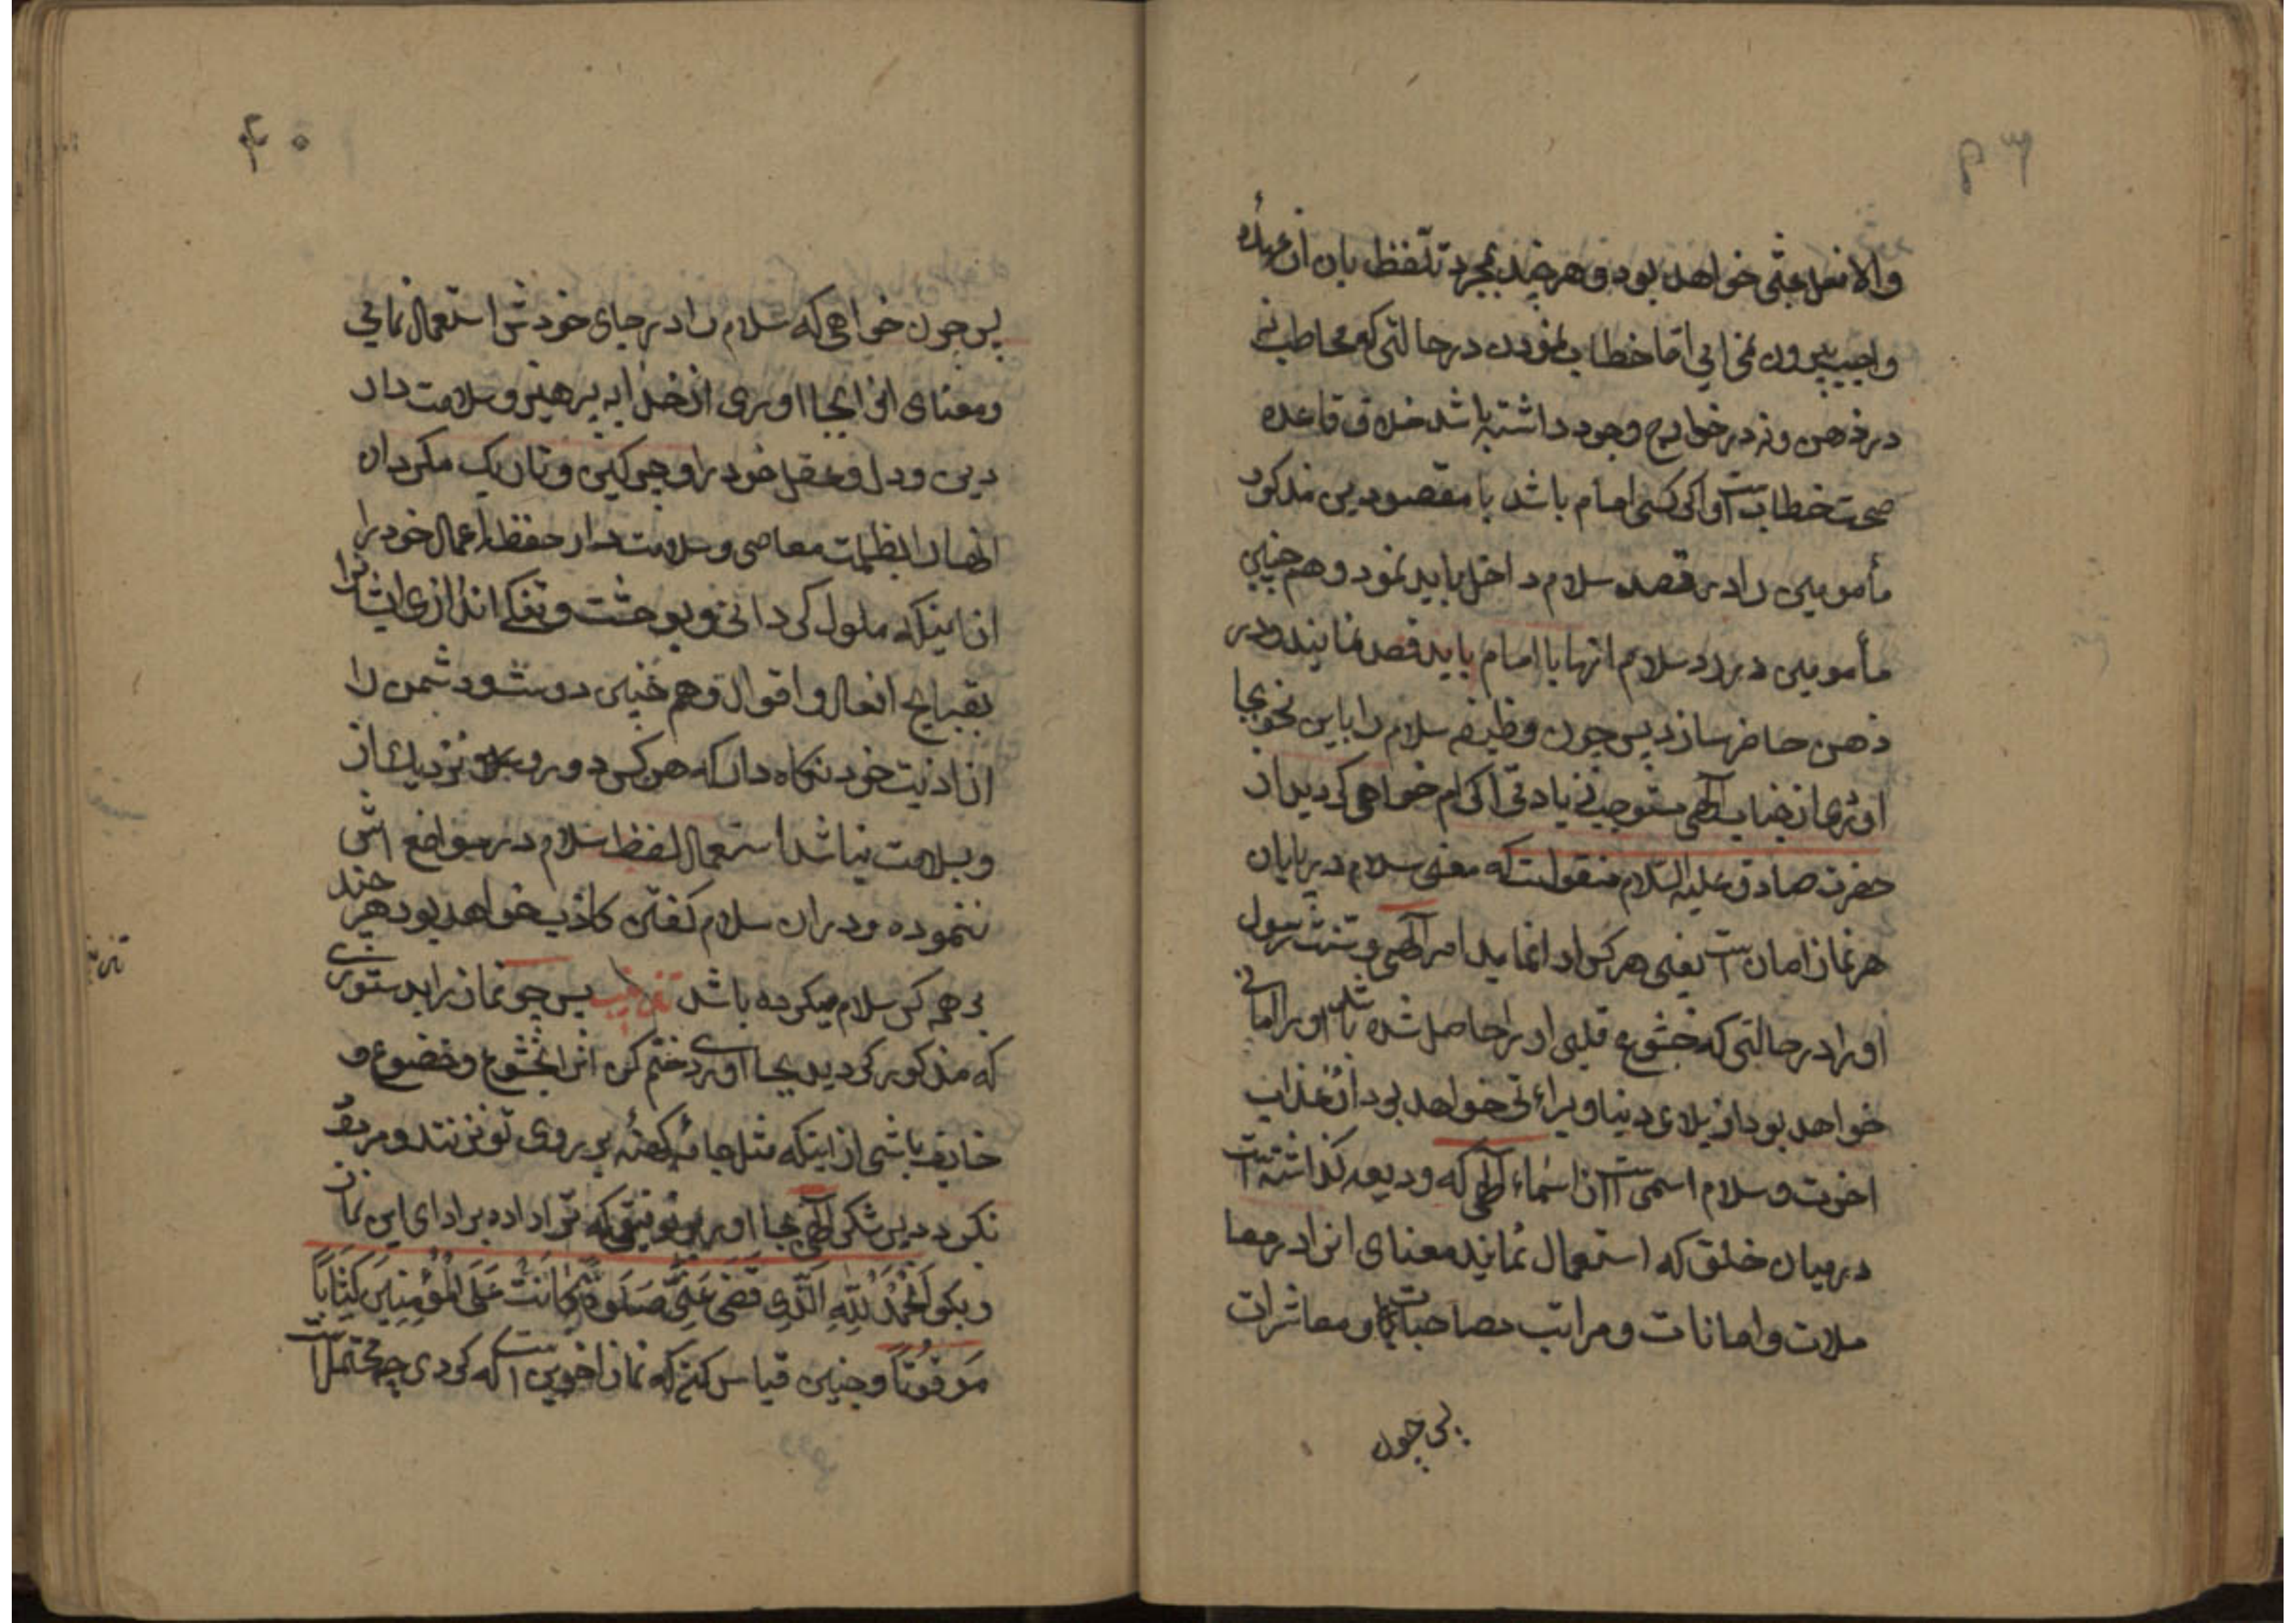 والا فعل عبثی خواهد بود و هر چند بمجرد تلفظ بان از عهده
واجب بیرون می ایی اما خطاب نمودن در حالتی که مخاطب نه
در ذهن و نه در خوارج وجود داشته باشد خلاف قاعده
صحت خطاب است و اکر کسی امام باشد با مقصودین مذکور
مأمومین را در قصد سلام داخل باید نمود و هم چنین
مأمومین در رد سلام انها با امام باید قصد نمایند و در
ذهن حاضر سازد پس چون وظیفه سلام را باین نحو بجا
اوری از جناب آلهی مستوجب زیادتی اکرام خواهی کردید از
حضرت صادق علیه السلام منقولست که معنی سلام در پایان
هر نماز امان است یعنی هر کس ادا نماید امر آلهی و سنت رسول
او را در حالتی که خشوع قلبی او را حاصل شده باشد او را امانی
خواهد بود از بلای دنیا و براءتی خواهد بود از عذاب
اخرت و سلام اسمی است از اسماء آلهی که ودیعه کذاشته است
در میان خلق که استعمال نمایند معنای انرا در معا
ملات و امانات و مراتب مصاحبات و معاشرات
پس چون
۴۰
پس چون خواهی که سلام را در جای خودش استعمال نمایی
و معنای انرا بجا اوری از خدا بپرهیز و سلامت دار
دین و دل و عقل خود را و چرکین و تاریک مکردان
انها را بظلمت معاصی و سلامت دار حفظه اعمال خود را
از اینکه ملول کردانی و بوحشت و تنکی اندازی ایشانرا
بقبایح افعال و اقوال و هم چنین دوست و دشمن را
از اذیت خود نکاه دار که هر کس دور و نزدیک از
و بسلامت نباشد استعمال لفظ سلام در مواضع اش
ننموده و در ان سلام کفتن کاذب خواهد بود هر چند
بر همه کس سلام میکرده باشد پس چو نماز را بدستوری
که مذکور کردید بجا اوردی ختم کن انرا بخشوع و خضوع و
خایف باشی از اینکه مثل جامه کهنه بر روی تو نزنند و مردود
نکردد پس شکر آلهی بجا اور بر توفیقی که ترا داده بر ادای این نماز
و بکو اَلْحَمْدُ لِلّٰهِ الَّذِی قَضَی عَنِّی صَلٰوةً کانَتْ عَلَی الْمُؤْمِنِینَ کِتاباً
مَوْقُوتاً و چنین قیاس کن که نماز اخرین است که کردی چه محتمل است